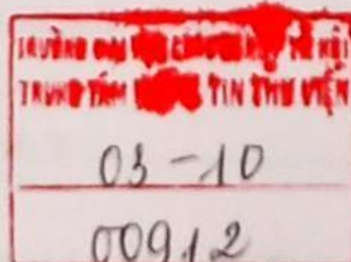 TRƯỜNG ĐẠI HÀ NỘI
TRUNG TÂM TIN THƯ VIỆN
03-10
00912